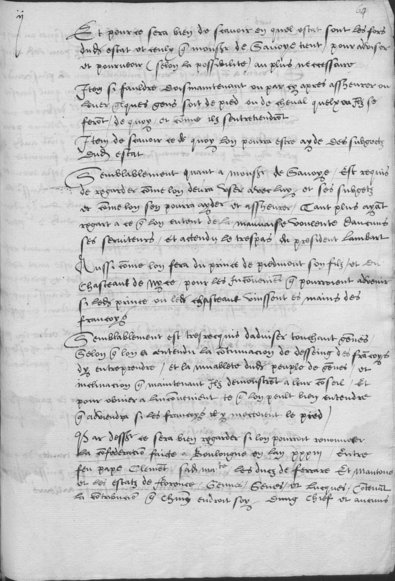 ij
64
Et pource se sera bien de scavoir en quel estat sont les fors
dudit estat et ceulx que monsr de Savoye tient pour adviser
et pourveoir (selon la possibilite) au plus necessaire
Item si fauldra doresmantenant ou par cy apres asseurer ou
lever quelques gens soit de pied ou de cheval quelx ilz se
feront de quoy et come ilz s'entretiendront
Item de scavoir et de quoy lon pourra estre ayde des subgectz
dudit estat
Semblablement quant a monsr de Savoye Est requis
de regarder come lon devra user avec luy et ses subgetz
et come lon sen pourra ayder et asseurer Tant plus ayant
regart a ce que lon entent de la mauvaise voulente daucuns
ses serviteurs et actendu le trespas du president Lambert
Aussi come lon fera du prince de piedmont son filz et du
Chasteau de Nyce pour les Inconveniens que pourroient advenir
si ledit prince ou ledit chasteau venissent es mains des
francoys
Semblablement est tresrequis dadviser touchant gennes
Selon que lon a entendu la continuacion du desseing des francoys
dy entreprendre et la muablete dudit peuple de gennes et
inclination que maintenant ilz demonstrent a leur conseil Et
pour obvier a linconvenient que lon peult bien entendre
que adviendra si les francoys y mectoient le pied
Par dessus ce sera bien regarder si lon pourroit renouveler
la confederation faicte a Bouloingne en lan xxxiii Entre
feu pape Clement sad. mate les ducz de ferrare Et Mantoue
et les estatz de florence Gennes Senes et Lucques Contenant
la contribucion que chacun endroit soy Dung chief et aucuns